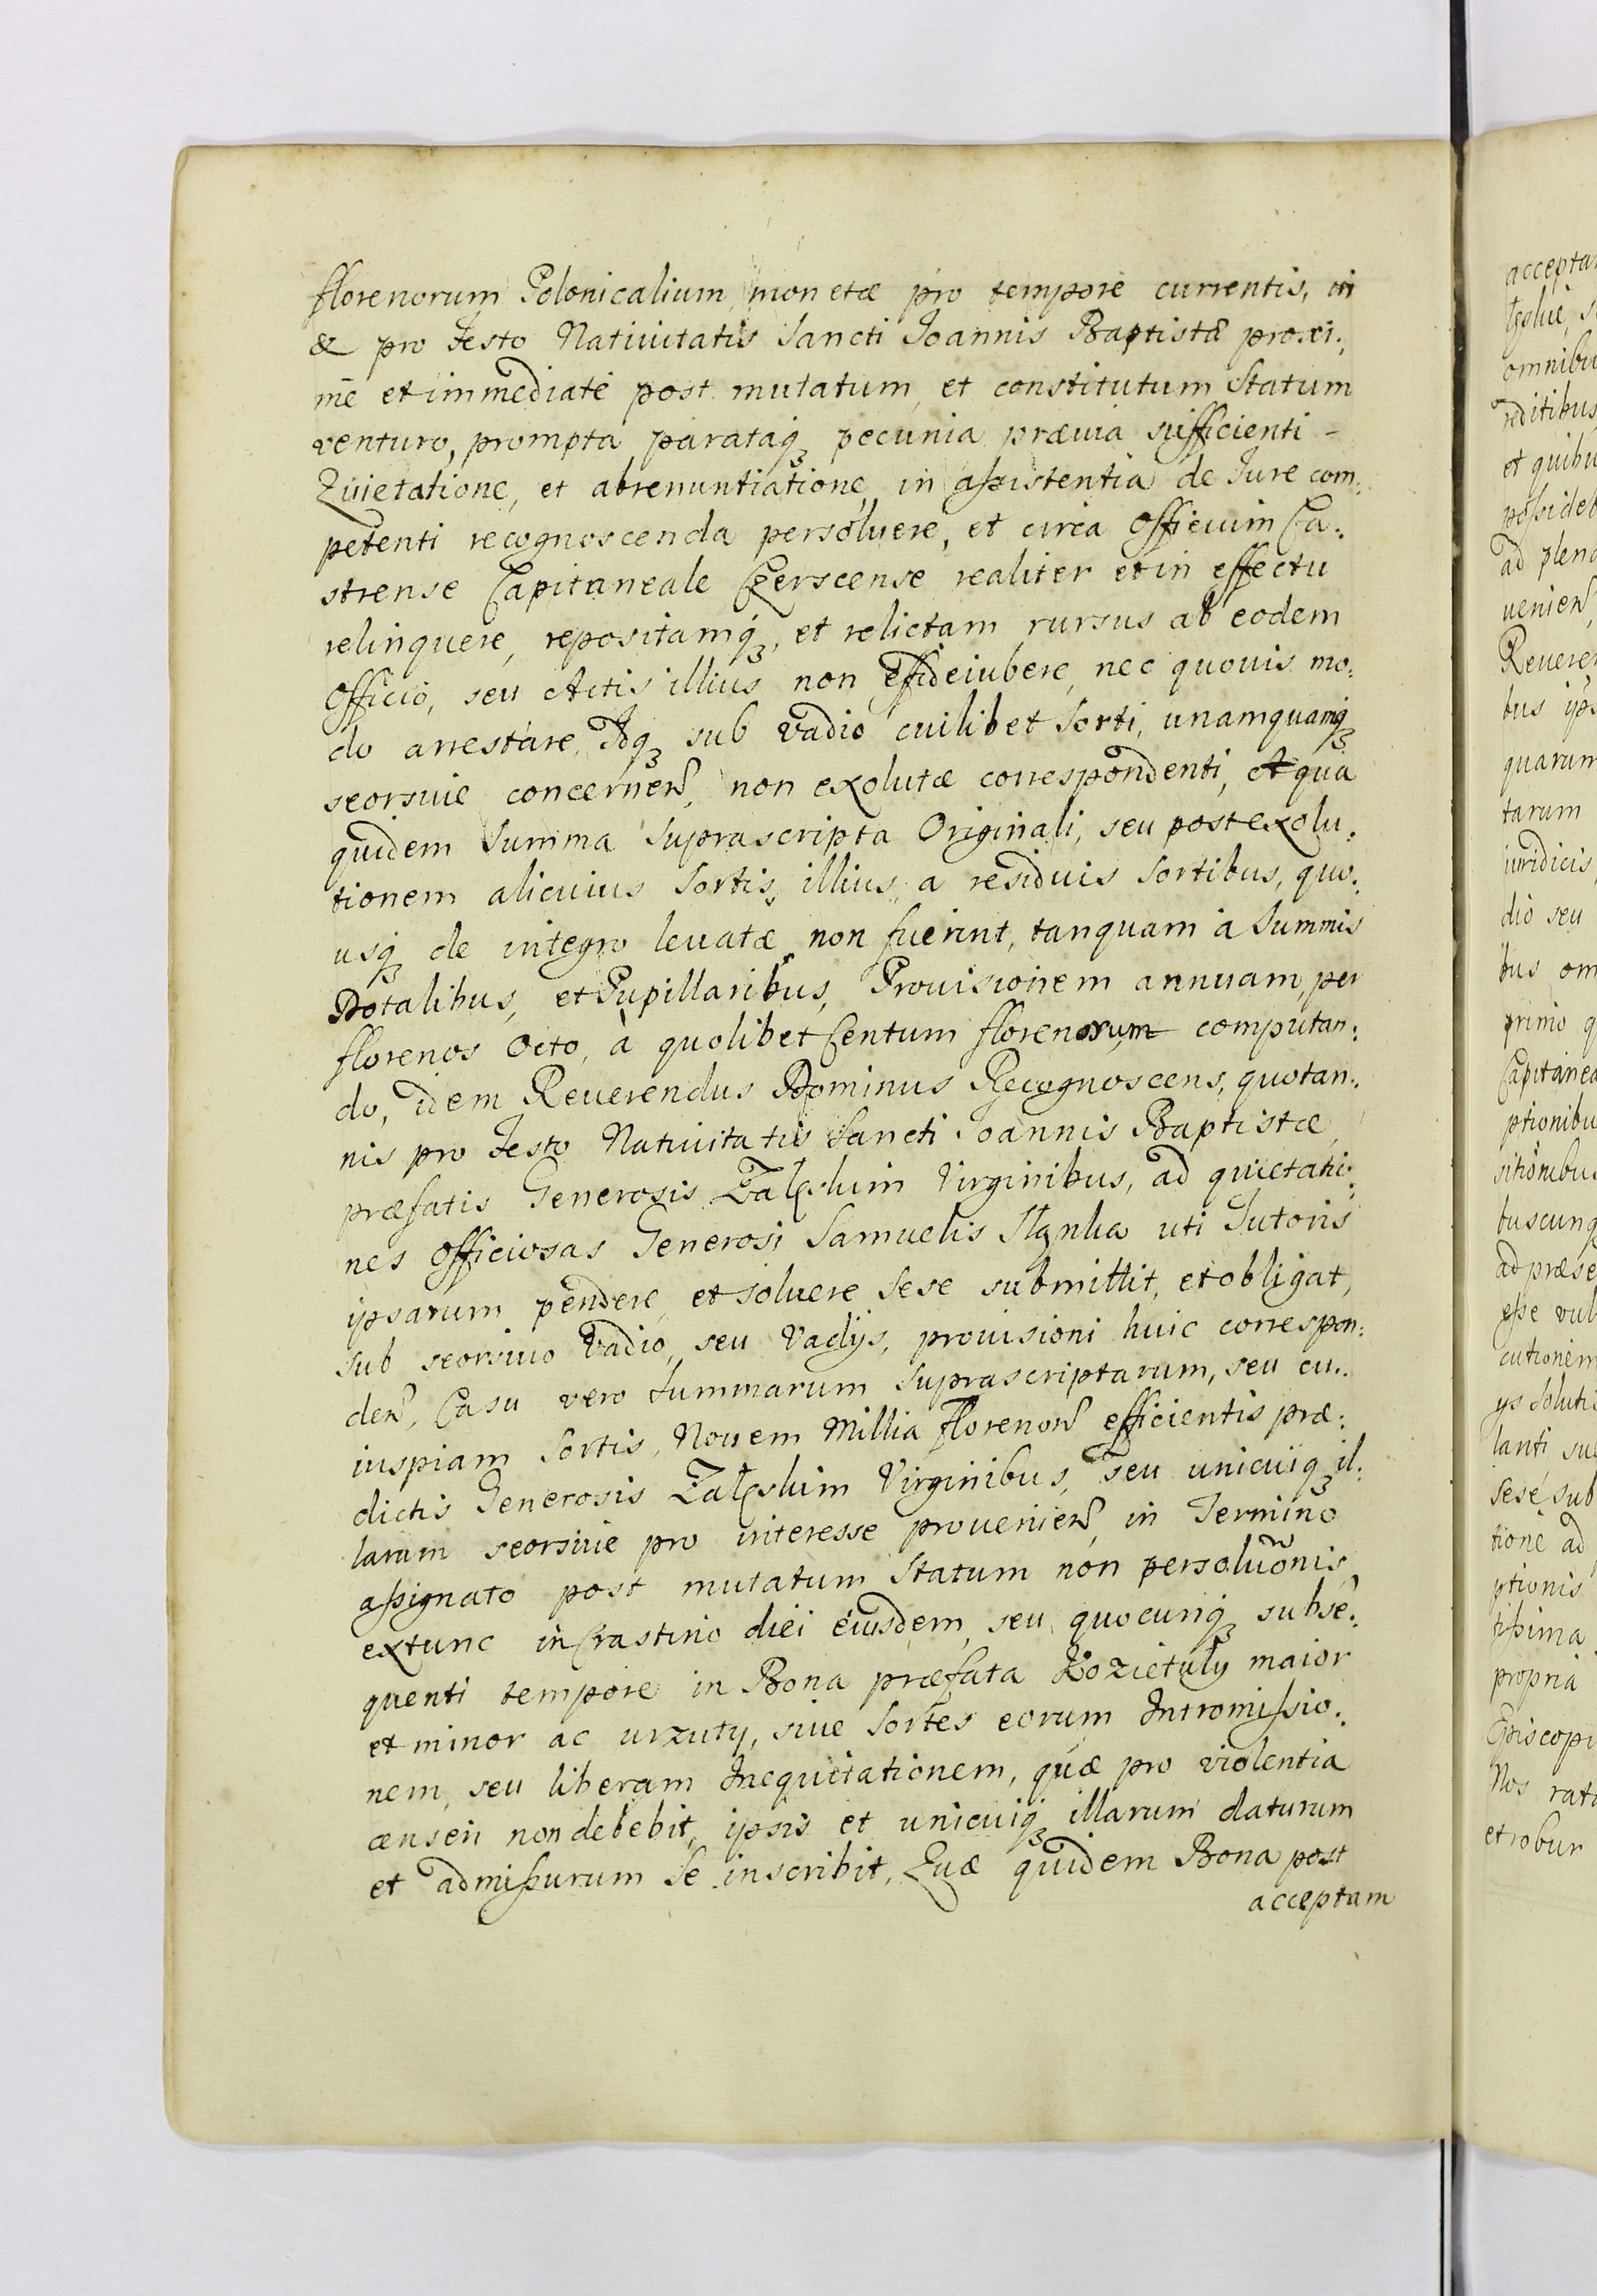 florenorum Polonicalium, monetæ pro tempore currentis, in
& pro Festo Nativitatis Sancti Joannis Baptistæ proxi:
mē et immediatè post mutatum, et constitutum Statum
venturo, prompta parataqꝫ pecunia prævia sufficienti -
Quietatione, et abrenuntiatione, in aßistentia de Jure com:
petenti recognoscenda persoluere, et circa Officium Ca:
strense Capitaneale Czerscense realiter et in effectu
relinquere, repositamqꝫ, et relictam rursus ab eodem
Officio, seu Actis illius non effideiubere, nec quouis mo:
do arrestare, Idqꝫ sub vadio cuilibet Sorti, unamquamqꝫ
seorsiue concernen̄, non exolutæ correspondenti, A qua
quidem Summa Suprascripta Originali, seu post exolu:
tionem alicuius Sortis, illius, a residuis Sortibus, quo:
usqꝫ de integro leuatæ non fuerint, tanquam à Summis
Dotalibus, et Pupillaribus, Prouisionem annuam, per
florenos Octo, à quolibet Centum florenorum computan:
do, idem Reuerendus Dominus Recognoscens, quotan:
nis pro Festo Natiuitatis Sancti Joannis Baptistæ,
præfatis Generosis Virginibus, ad quietatio:
nes Officiosas Generosi Samuelis uti Tutoris
ipsarum pendere, et soluere sese submittit, et obligat,
sub seorsiuo Vadio, seu Vadijs, prouisioni huic correspon:
den̄, Casu vero Summarum Suprascriptarum, seu cu:
iuspiam Sortis, Nouem Millia florenor̄ efficientis præ:
dictis Generosis Virginibus, seu unicuiqꝫ il:
larum seorsiue pro interesse prouenien̄, in Termino
aßignato post mutatum Statum non persolūonis,
extunc in Crastino diei eiusdem, seu quocunqꝫ subse:
quenti tempore in Bona præfata Kozietuły maior
et minor ac urzuty, siue Sortes eorum Intromißio:
nem, seu liberam Inequitationem, quæ pro violentia
censeri non debebit, ipsis et unicuiqꝫ illarum daturum
et admißurum se inscribit, Quæ quidem Bona post
acceptam